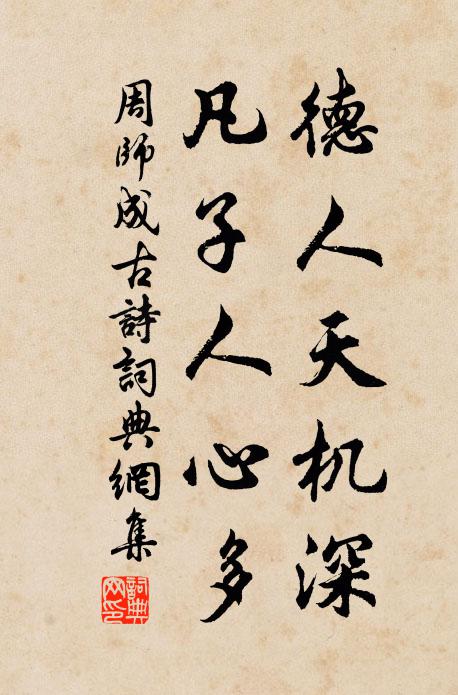 德人天机深
凡子人心多
周師成古詩詞典網集
詞典